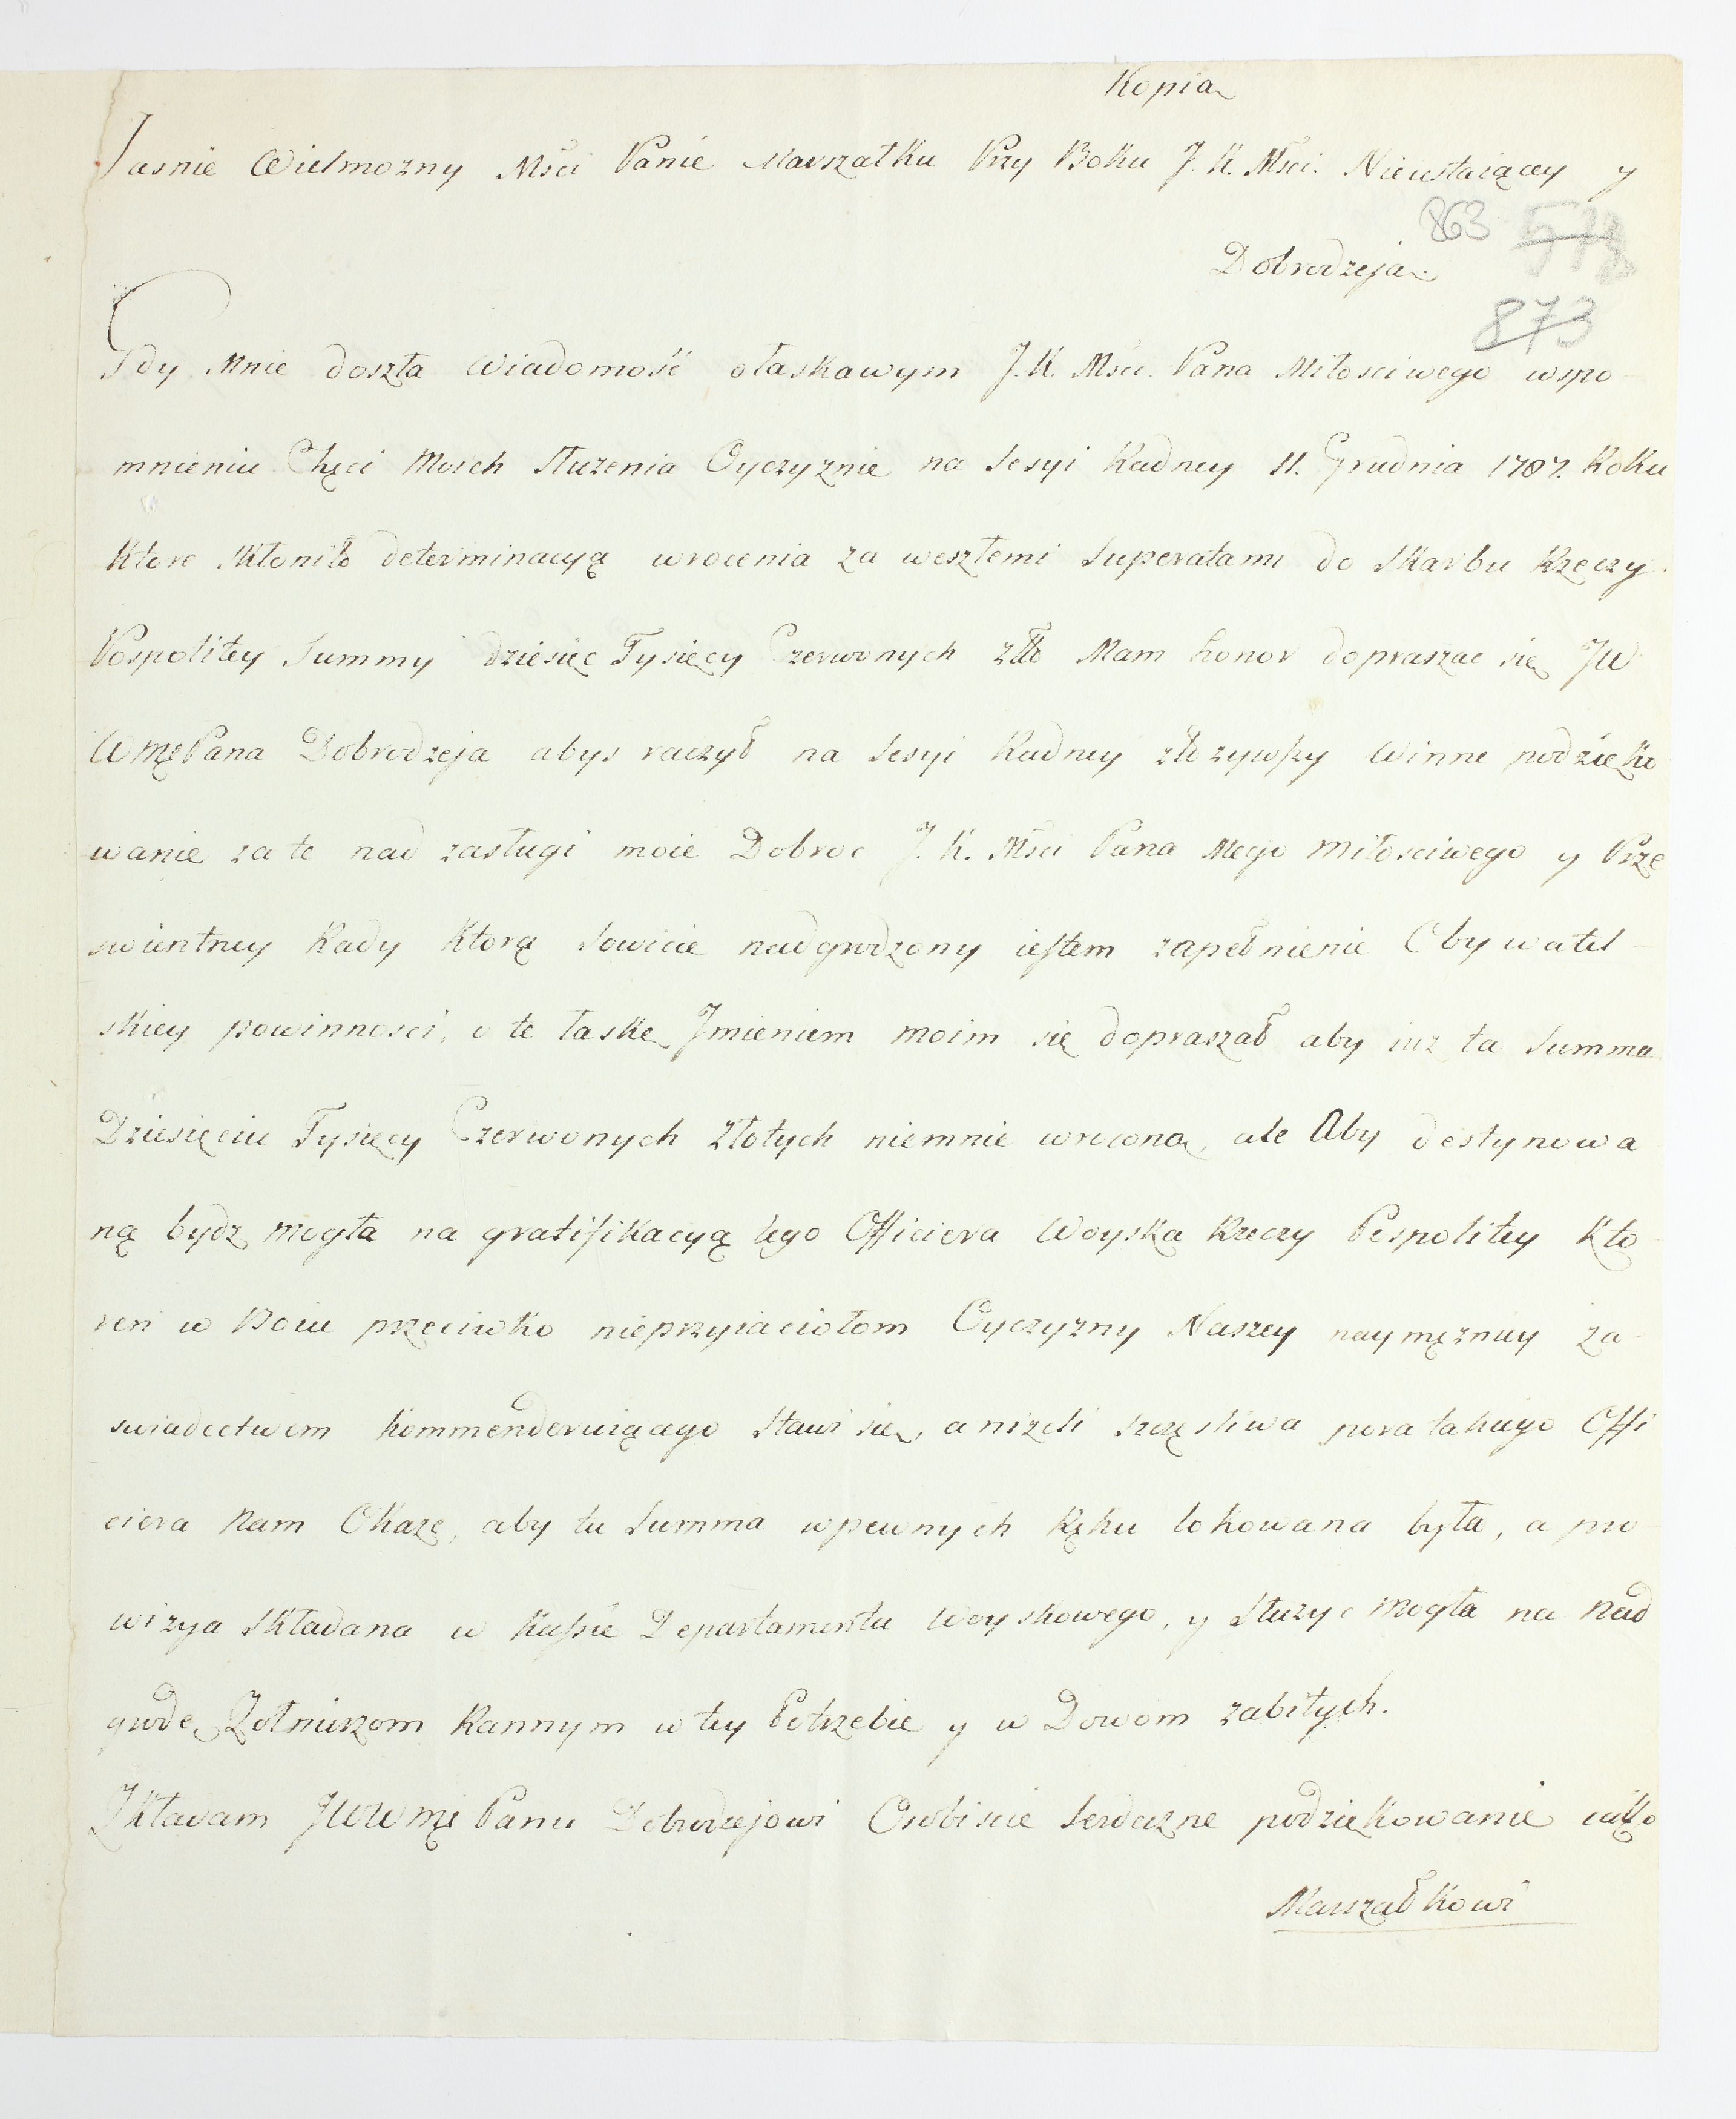 Kopia
Jasnie Wielmozny Mści Panie Marszałku Przy Boku J. K. Mści. Nieustaiącey y
863
Dobrodzeja
873
Gdy Mnie doszła Wiadomość ołaskawym J. K. Mści. Pana Miłosciwego wspo
mnieniu Chęci Moich służenia Oyczyznie na Sesyi Radney 11. Grudnia 1787. Roku
Ktore skłoniło determinacyą wrocenia za weszłemi Superatami do Skarbu Rzeczy
Pospolitey Summy dziesięc Tysięcy Czerwonych Złło Mam honor dopraszac się JW
WMęPana Dobrodzeja abys raczył na Sesyi Radney złozywszy Winne podzięko
wanie za te nad zasługi moie Dobroc J. K. Mści Pana Mego Miłosciwego y Prze
swientney Rady Ktorą Sowicie nadgrodzony iestem zapełnienie Obywatel
skiey powinnosci, o te łaskę Jmieniem moim się dopraszał aby iuz ta Summa
Dziesięciu Tysięcy Czerwonych Złotych niemnie wrocona, ale Aby destynowa
ną bydz mogła na gratifikacyą tego Officiera Woyska Rzeczy Pospolitey Kto
ren w Boiu przeciwko nieprzyiaciołom Oyczyzny Naszey naymęzniey za
swiadectwem kommenderuiącego Stawi się, a nizeli szczęsliwa pora takiego Offi
ciera Nam Okaze, aby ta Summa wpewnych Ręku lokowana była, a pro
wizya Składana w Kassie Departamentu Woyskowego, y Słuzyc Mogła na Nad
grodę Zołnierzom Rannym w tey Potrzebie y w Dowom zabitych.
Składam JWWMę Panu Dobrodzejowi Osobiscie Serdeczne podziękowanie iako
Marszałkowi